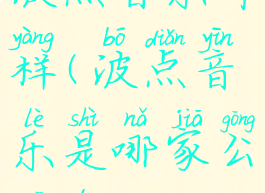 yàng bō diǎn yīn
样(波点音
lè shì nǎ jiā gōng
乐是哪家公